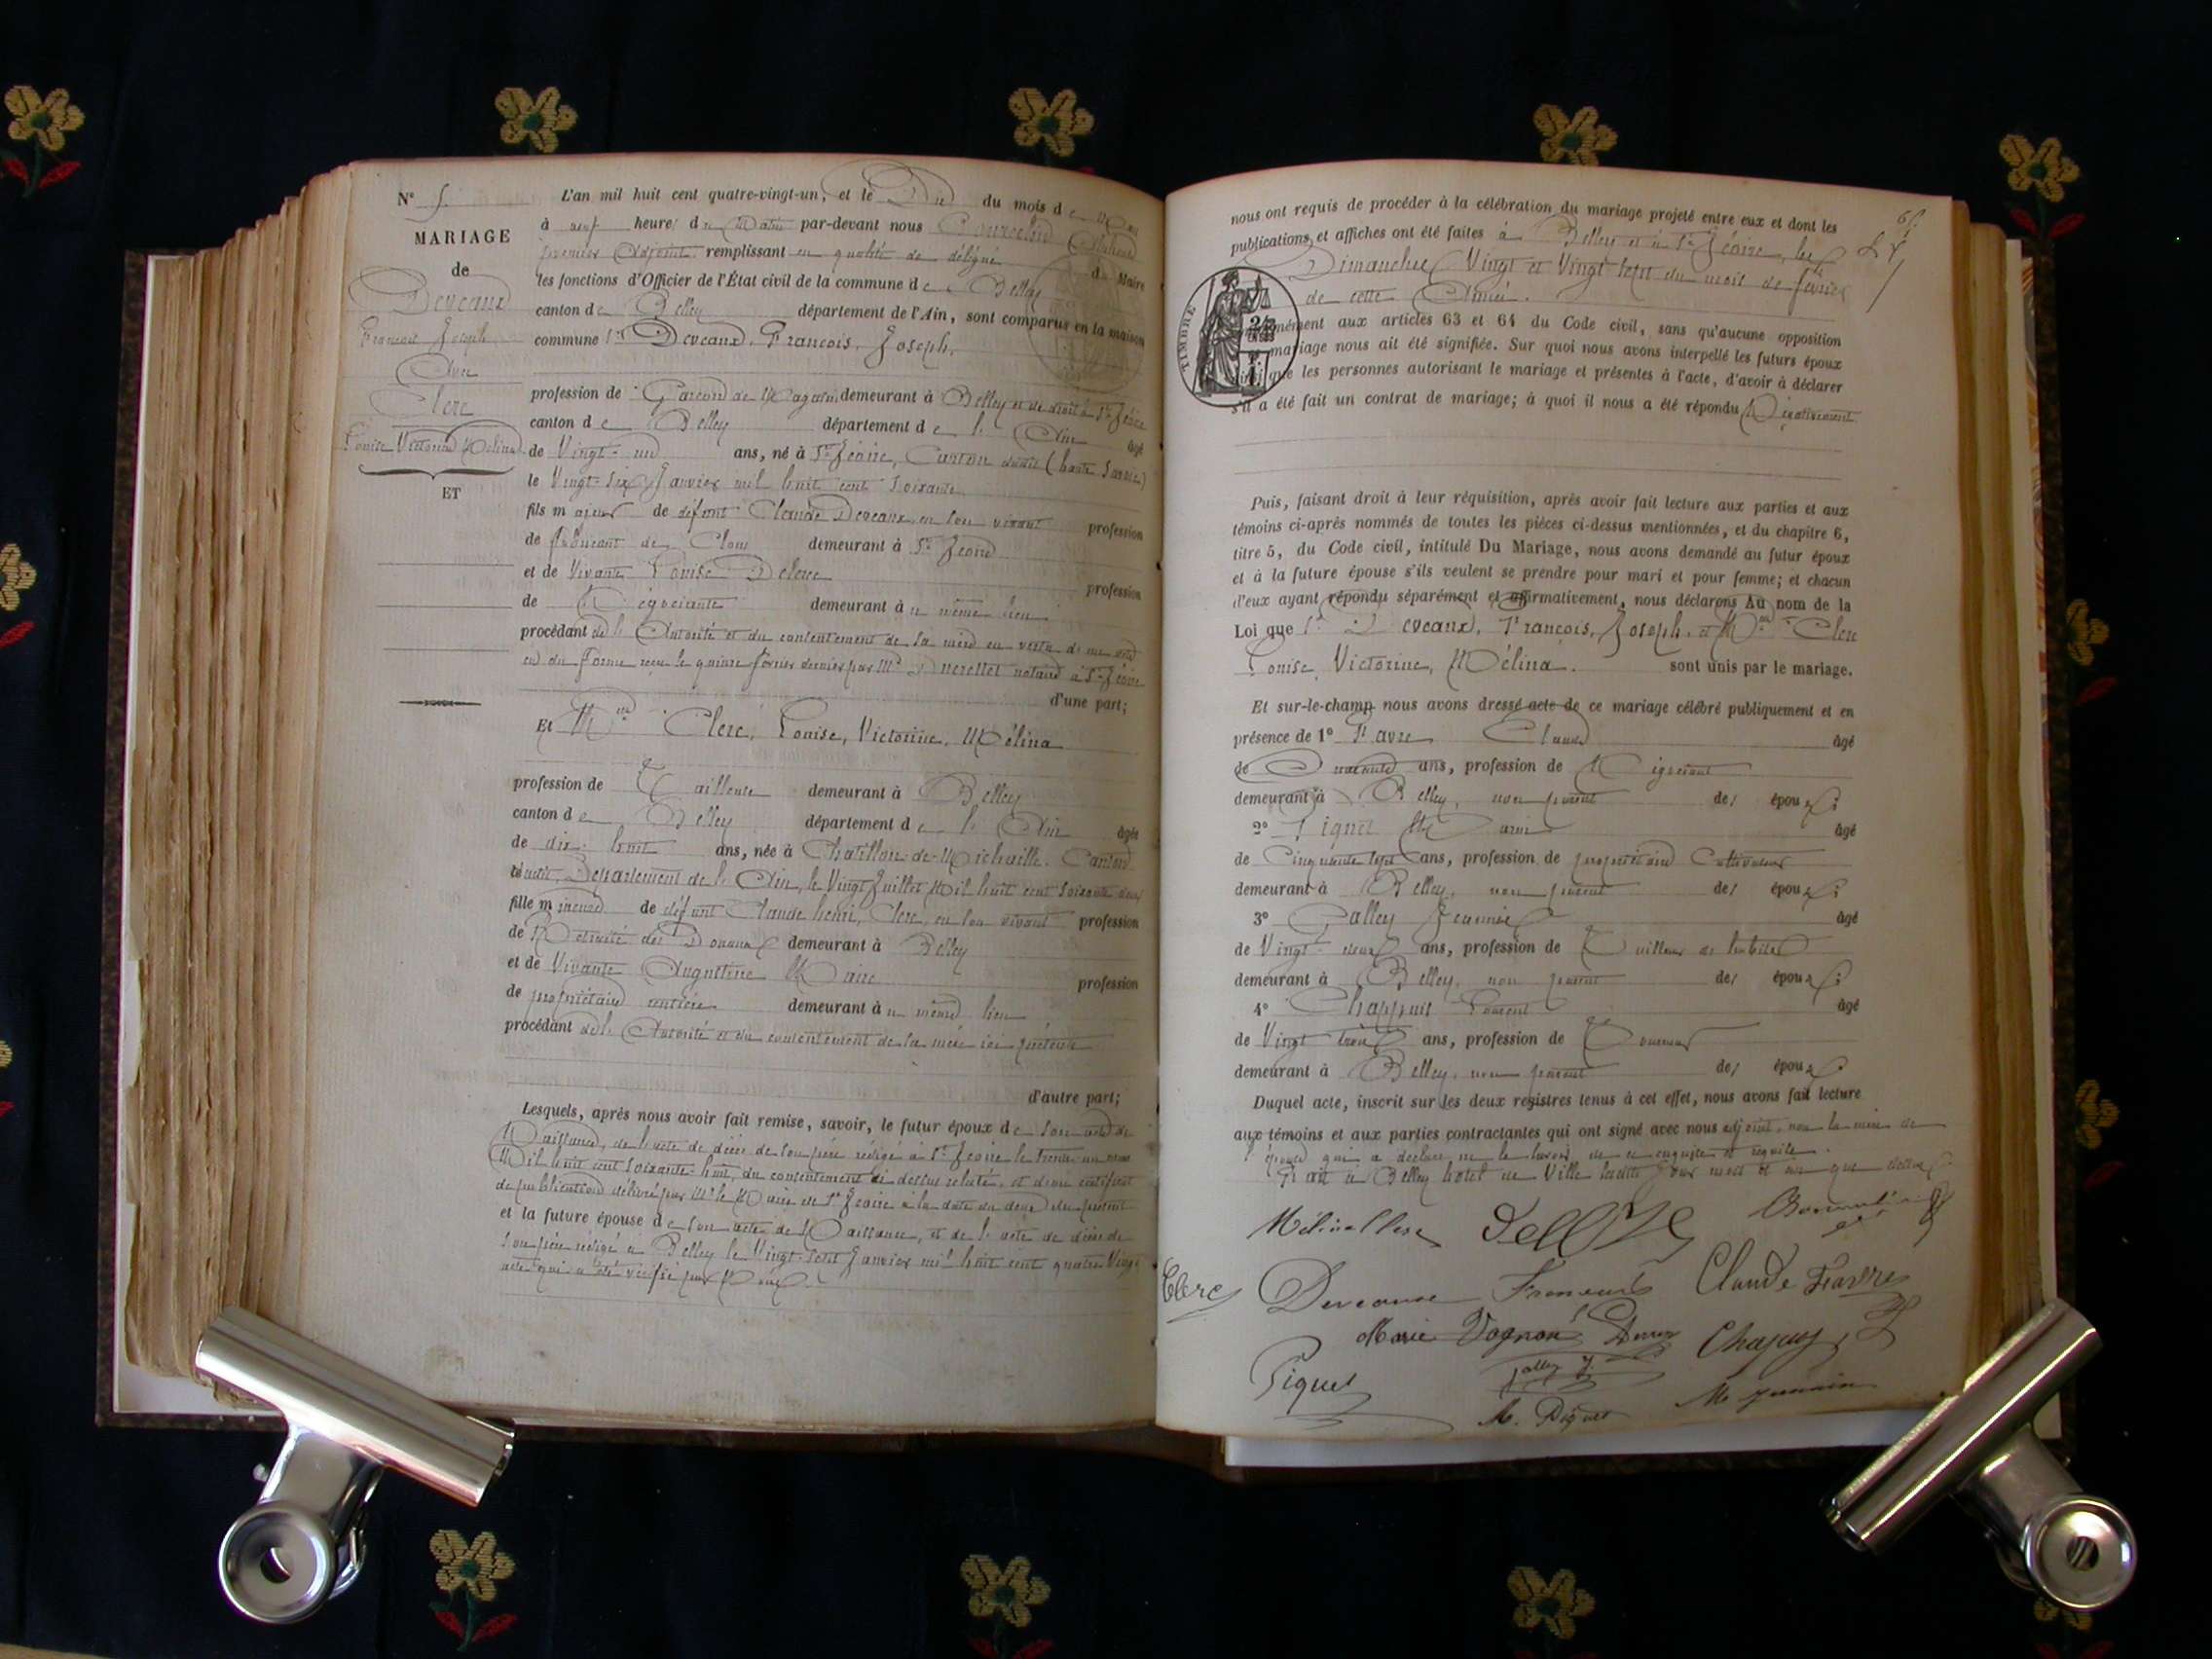 N° 5.
MARIAGE
de
Deveaux
François Joseph
Avec
Clerc
Louise Victorine Mélina
ET
L'an mil huit cent quatre-vingt-un, et le Dix du mois de
à neuf heures du Matin par-devant nous
premier Adjoint remplissant en qualité de délégué du Maire
les fonctions d'Officier de l'État civil de la commune de Belley
canton de Belley département de l'Ain, sont comparus en la maison
commune Sr Deveaux, François, Joseph,
profession de Garçon de Magasin demeurant à Belley et de droit à St Jeoire
canton de Belley département de l'Ain âgé
de Vingt-un ans, né à St Jeoire, Canton dudit (haute Savoie)
le Vingt-Six Janvier mil huit cent soixante
fils majeur de défunt Claude Deveaux, en son vivant profession
de fabricant de Clous demeurant à St Jeoire
et de Vivante Louise Delerce profession
de Négociante demeurant au même lieu
procédant de l'Autorité et du consentement de sa mère en vertu d'un acte
en due forme reçu le quinze février dernier par Me notaire à St Jeoire
d'une part;
Et Mlle Clerc, Louise, Victorine, Mélina
profession de Tailleuse demeurant à Belley
canton de Belley département de l'Ain âgée
de dix-huit ans, née à Chatillon-de-Michaille, Canton
dudit, Département de l'Ain, le Vingt Juillet Mil huit cent soixante deux
fille mineure de défunt Claude henri, Clerc, en son vivant profession
de Retraité des Douanes demeurant à Belley
et de Vivante Augustine Maire profession
de propriétaire rentière demeurant au même lieu
procédant de l'Autorité et du consentement de sa mère ici présente
d'autre part;
Lesquels, après nous avoir fait remise, savoir, le futur époux de son acte de
Naissance, de l'acte de décès de son père rédigé à St Jeoire le trente un mars
Mil huit cent soixante-huit, du consentement ci dessus relaté, et d'un certificat
de publication délivré par Mr le Maire de St Jeoire à la date du deux du présent
et la future épouse de son acte de Naissance, et de l'acte de décès de
son père rédigé à Belley le Vingt-Sept Janvier mil huit cent quatre Vingt
acte qui a été vérifié par Nous.
nous ont requis de procéder à la célébration du mariage projeté entre eux et dont les
publications et affiches ont été faites à Belley et à St Jeoire, les
Dimanches Vingt et Vingt Sept du mois de février
de cette Année.
TIMBRE
conformément aux articles 63 et 64 du Code civil, sans qu'aucune opposition
mariage nous ait été signifiée. Sur quoi nous avons interpellé les futurs époux
ainsi que les personnes autorisant le mariage et présentes à l'acte, d'avoir à déclarer
s'il a été fait un contrat de mariage; à quoi il nous a été répondu Négativement
Puis, faisant droit à leur réquisition, après avoir fait lecture aux parties et aux
témoins ci-après nommés de toutes les pièces ci-dessus mentionnées, et du chapitre 6,
titre 5, du Code civil, intitulé Du Mariage, nous avons demandé au futur époux
et à la future épouse s'ils veulent se prendre pour mari et pour femme; et chacun
d'eux ayant répondu séparément et affirmativement, nous déclarons Au nom de la
Loi que Sr Deveaux, François, Joseph, et Mlle Clerc
Louise, Victorine, Mélina. sont unis par le mariage.
Et sur-le-champ nous avons dressé acte de ce mariage célébré publiquement et en
présence de 1° Favre Claude âgé
de Quarante ans, profession de Négociant
demeurant à Belley, non parent des époux;
2° Piquet Marin âgé
de Cinquante Sept ans, profession de propriétaire Cultivateur
demeurant à Belley, non parent des époux;
3° Galley Jeannie âgé
de Vingt-deux ans, profession de Tailleur de habits
demeurant à Belley, non parent des époux;
4° Chappuis Laurent âgé
de Vingt trois ans, profession de Tourneur
demeurant à Belley, non parent des époux
Duquel acte, inscrit sur les deux registres tenus à cet effet, nous avons fait lecture
aux témoins et aux parties contractantes qui ont signé avec nous adjoint, non la mère de
l'épouse qui a déclaré ne le savoir de ce enquise et requise.
Fait à Belley hotel de Ville ledit Jour mois et an que dessus
Mélina Clerc
Clerc
Deveaux François Claude Favre
Marie Vognon
Piquet
Galley J.